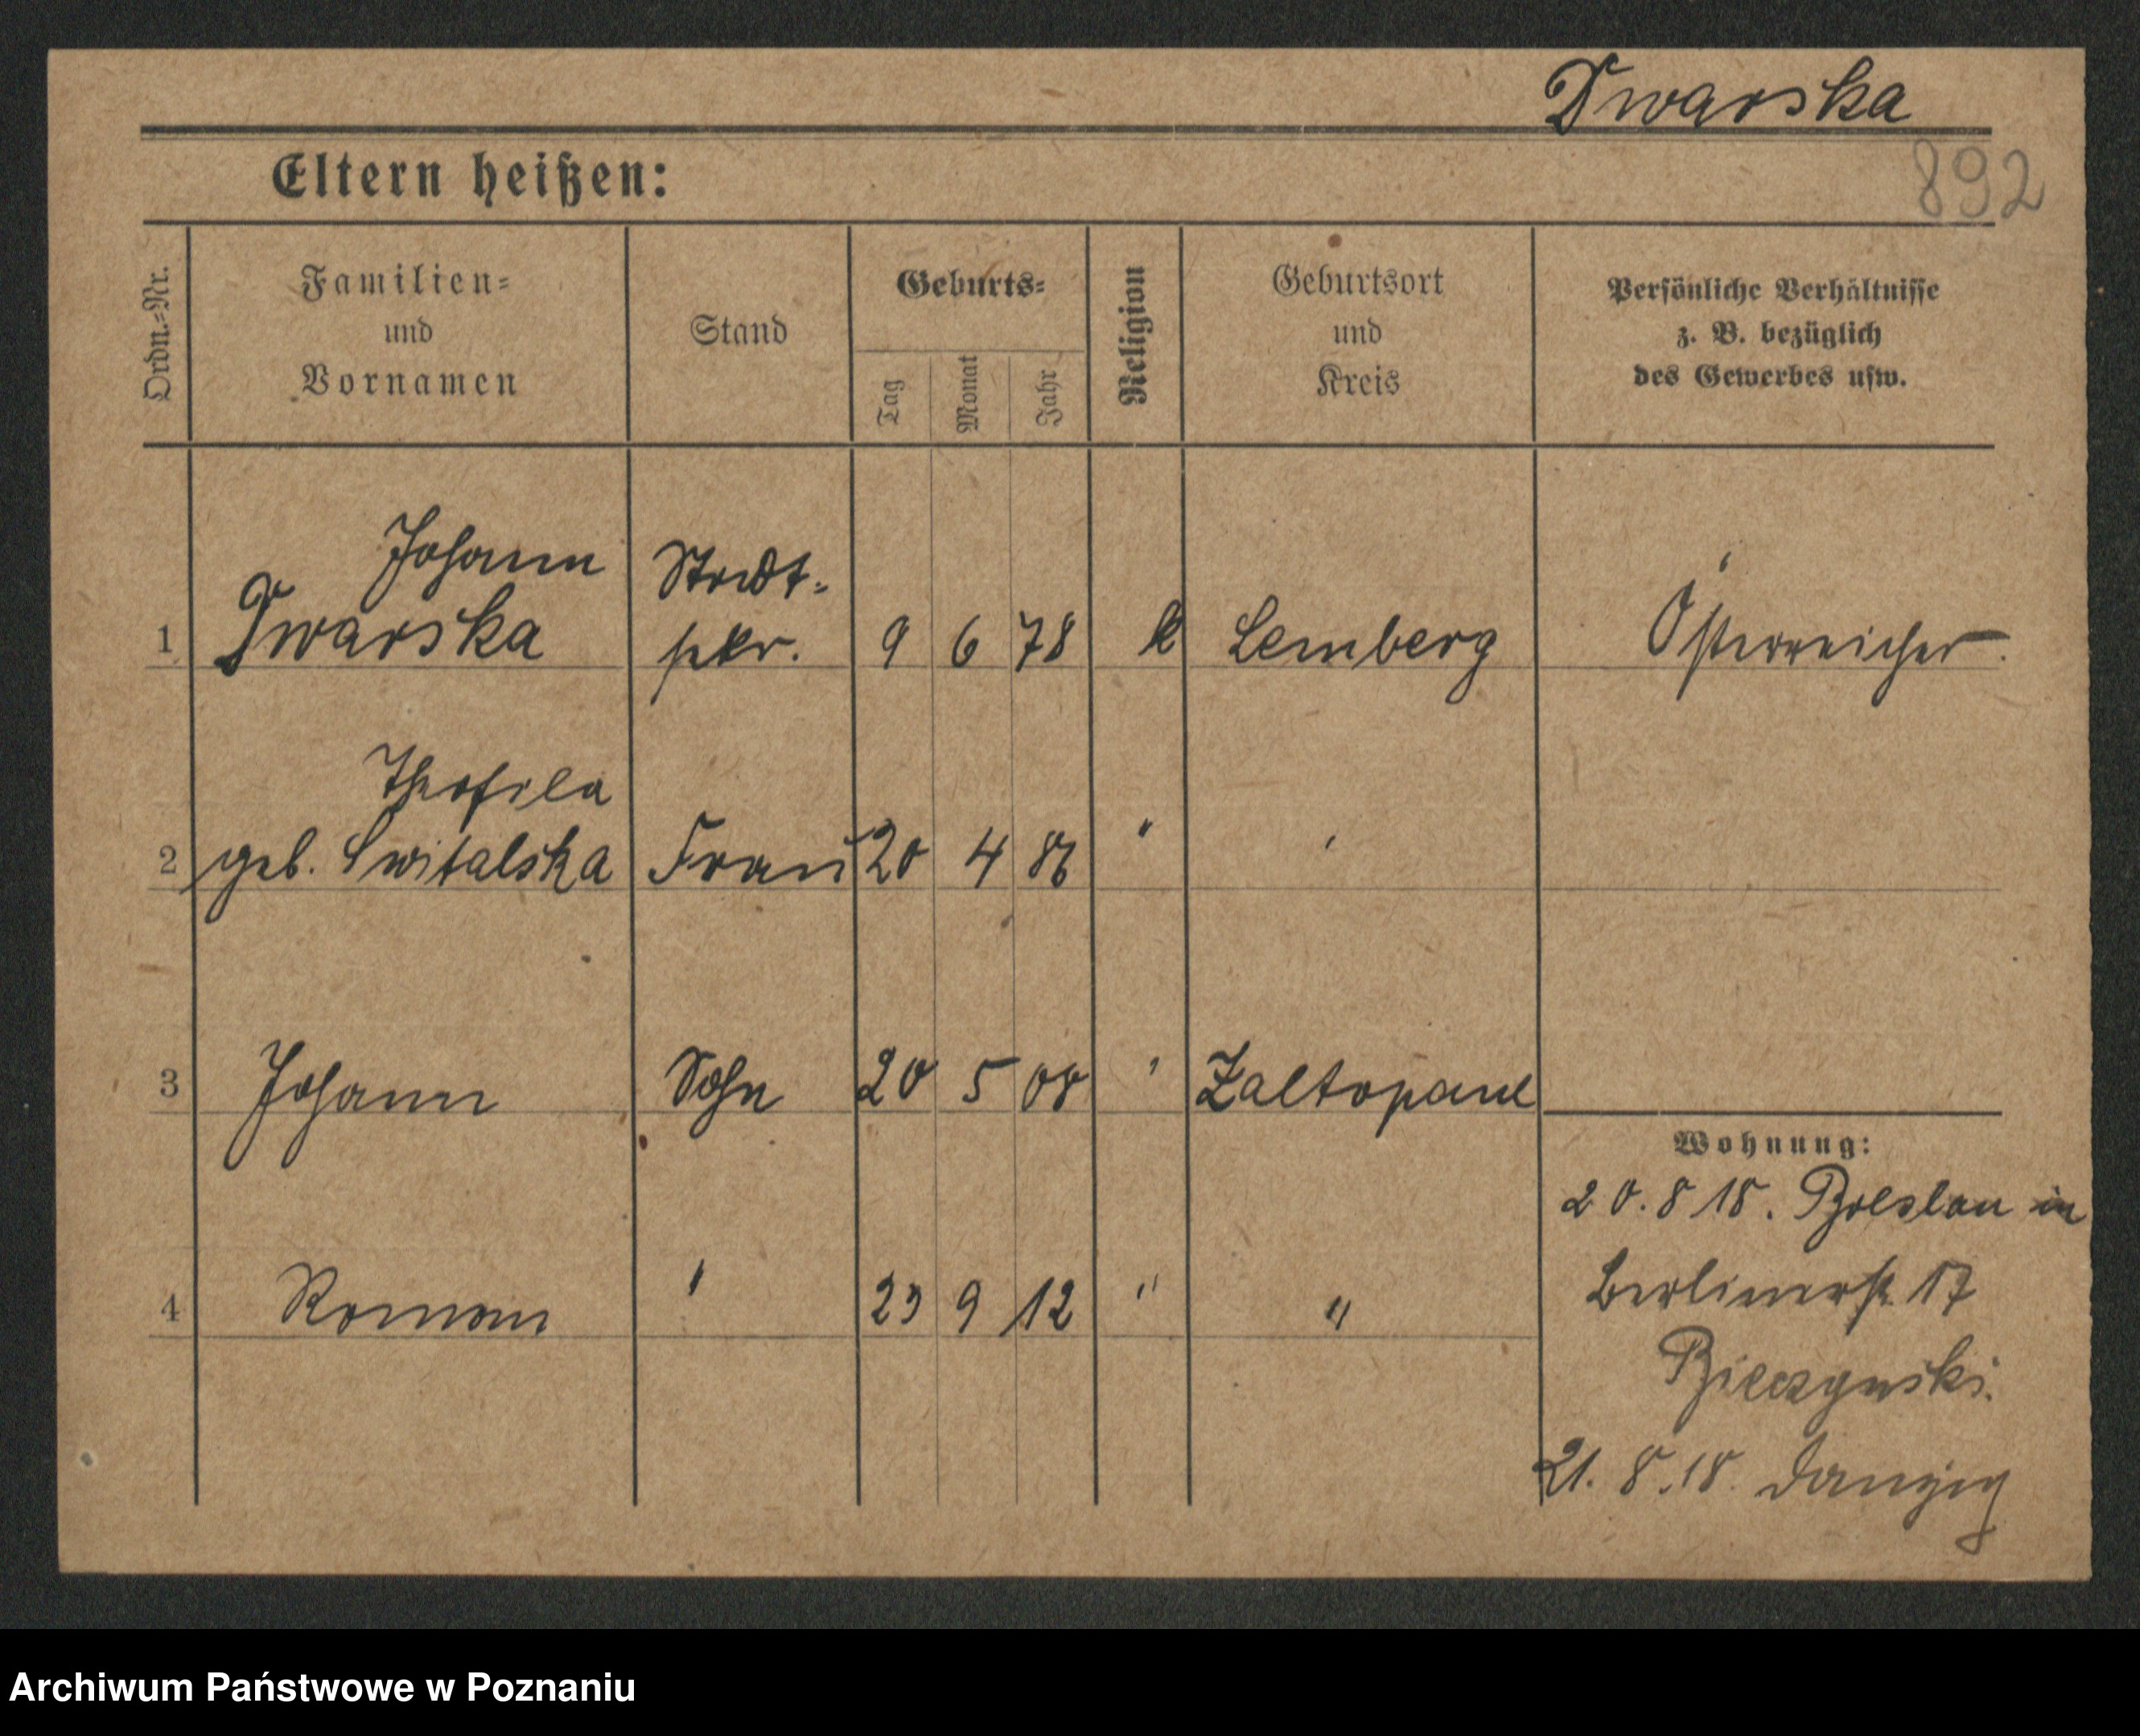 Dwarska
892
Eltern heißen:
Ordn.=Nr.
Familien=
und
Vornamen
Stand
Geburts=
Tag
Monat
Jahr
Religion
Geburtsort
und
Kreis
Persönliche Verhältnisse
z. B. bezüglich
des Gewerbes usw.
Johann
1 Dwarska
Stadt=
skr. 9 6 78 k Lemberg Österreicher.
Theofila
2 geb. Switalska Frau 20 4 86 " "
3 Johann Sohn 20 5 08 "
Wohnung:
20. 8 18. Breslau in
4 Roman " 23 9 12 " "
Berlinerstr. 17
21. 8. 18. Danzig
Archiwum Państwowe w Poznaniu